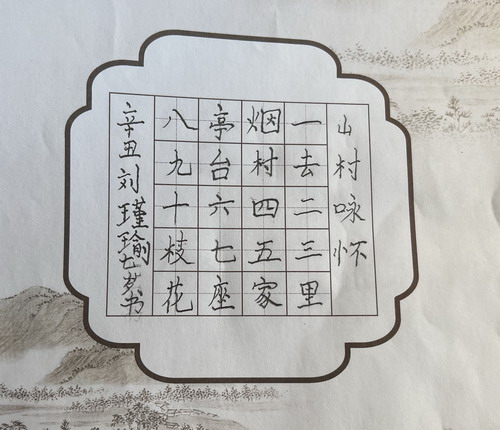 山村咏怀
一去二三里
烟村四五家
亭台六七座
八九十枝花
辛丑刘瑾瑜七岁书